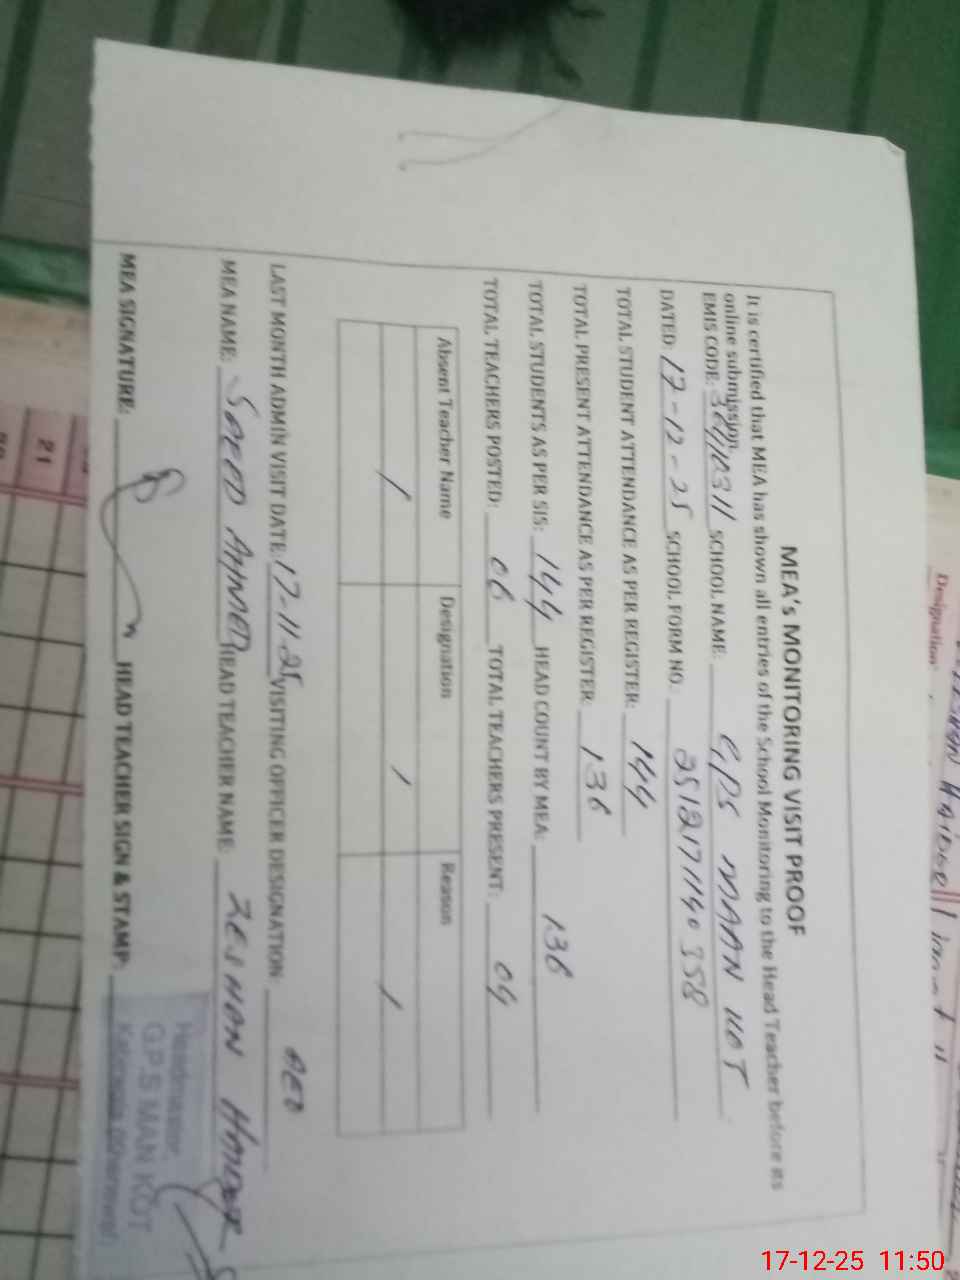 MEA's MONITORING VISIT PROOF
It is certified that MEA has shown all entries of the School Monitoring to the Head Teacher before its
online submission.
EMIS CODE: SCHOOL NAME: GPS MAAN KOT
DATED: 17-12-25 SCHOOL FORM NO.:
TOTAL STUDENT ATTENDANCE AS PER REGISTER: 144
TOTAL PRESENT ATTENDANCE AS PER REGISTER: 136
TOTAL STUDENTS AS PER SIS: 144 HEAD COUNT BY MEA: 136
TOTAL TEACHERS POSTED: 06 TOTAL TEACHERS PRESENT:
Absent Teacher Name Designation Reason
/ / /
LAST MONTH ADMIN VISIT DATE: 17-11-25 VISITING OFFICER DESIGNATION: AEO
MEA NAME: SAEED AHMED HEAD TEACHER NAME: ZESHAN HAIDER
MEA SIGNATURE: HEAD TEACHER SIGN & STAMP:
Headmaster
G.P.S MAN KOT
Designation
21
17-12-25 11:50